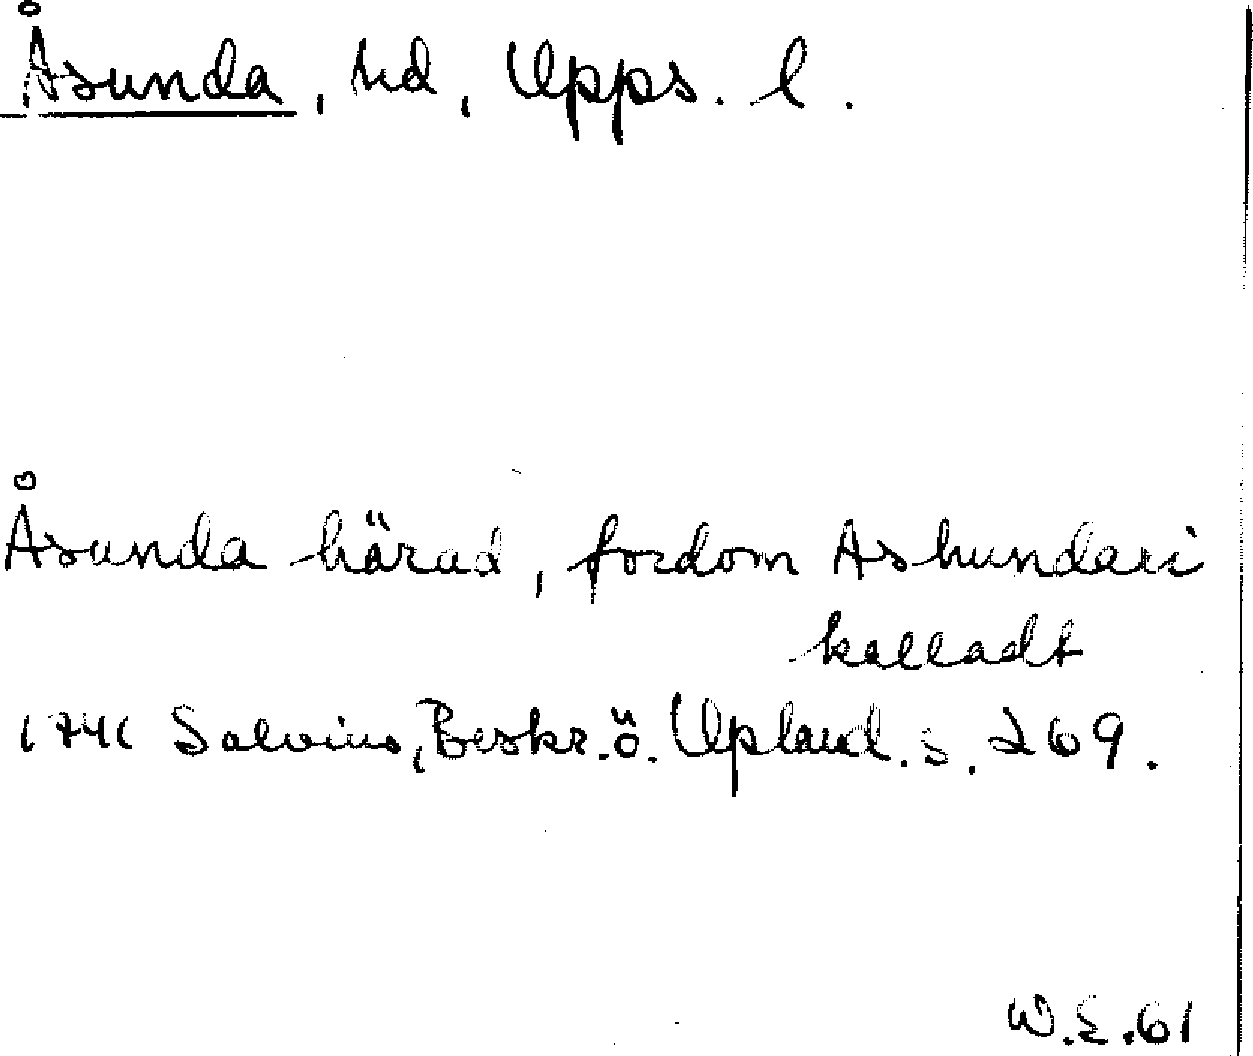 Åsunda, hd, Upps. l.
Åsunda härad, fordom Ashundari
kalladt
1741 Salvius, Beskr. ö. Upland. s. 269.
W.E. 61